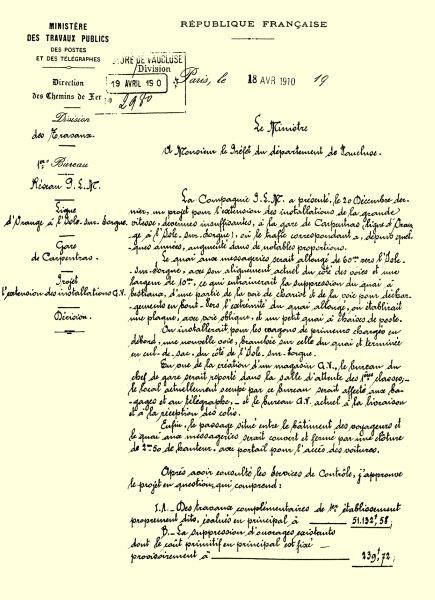 MINISTÈRE
DES TRAVAUX PUBLICS
DES POSTES
ET DES TÉLÉGRAPHES
Direction
des Chemins de Fer
Division
des Travaux.
1er Bureau
Réseau P.L.M.
Ligne
d'Orange à l'Isle-sur-Sorgue.
Gare
de Carpentras.
Projet
d'extension des installations G.V.
Décision.
RÉPUBLIQUE FRANÇAISE
DE VAUCLUSE
Division
19 AVRIL 1910
2980
Paris, le 18 AVR 1910 19
Le Ministre
A Monsieur le Préfet du département de Vaucluse.
La Compagnie P.L.M. a présenté, le 20 Décembre der-
nier, un projet pour l'extension des installations de la grande
vitesse, devenues insuffisantes, à la gare de Carpentras (ligne d'Oran-
ge à l'Isle-sur-Sorgue), où le trafic correspondant a, depuis quel-
ques années, augmenté dans de notables proportions.
Le quai aux messageries serait allongé de 60m vers l'Isle-
sur-Sorgue, avec son alignement actuel du côté des voies et une
largeur de 10m, ce qui entraînerait la suppression du quai à
bestiaux, d'une partie de la voie de chariot et de la voie pour déchar-
gements en bout. Vers l'extrémité du quai allongé, on établirait
une plaque, avec voie oblique, et un petit quai à chaises de poste.
On installerait pour les wagons de primeurs chargés en
débord, une nouvelle voie, branchée sur celle du quai et terminée
en cul-de-sac, du côté de l'Isle-sur-Sorgue.
En vue de la création d'un magasin G.V., le bureau du
chef de gare serait reporté dans la salle d'attente des 1ères classes,
le local actuellement occupé par ce bureau serait affecté aux ba-
gages et au télégraphe, et le bureau G.V. actuel à la livraison
et à la réception des colis.
Enfin, le passage situé entre le bâtiment des voyageurs et
le quai aux messageries serait couvert et fermé par une clôture
de 2m50 de hauteur, avec portail pour l'accès des voitures.
Après avoir consulté les Services de Contrôle, j'approuve
le projet en question, qui comprend:
A.- Des travaux complémentaires de 1er établissement
proprement dits, évalués en principal à 51.132f,58;
B.- La suppression d'ouvrages existants
dont le coût primitif en principal est fixé
provisoirement à 239f,72;